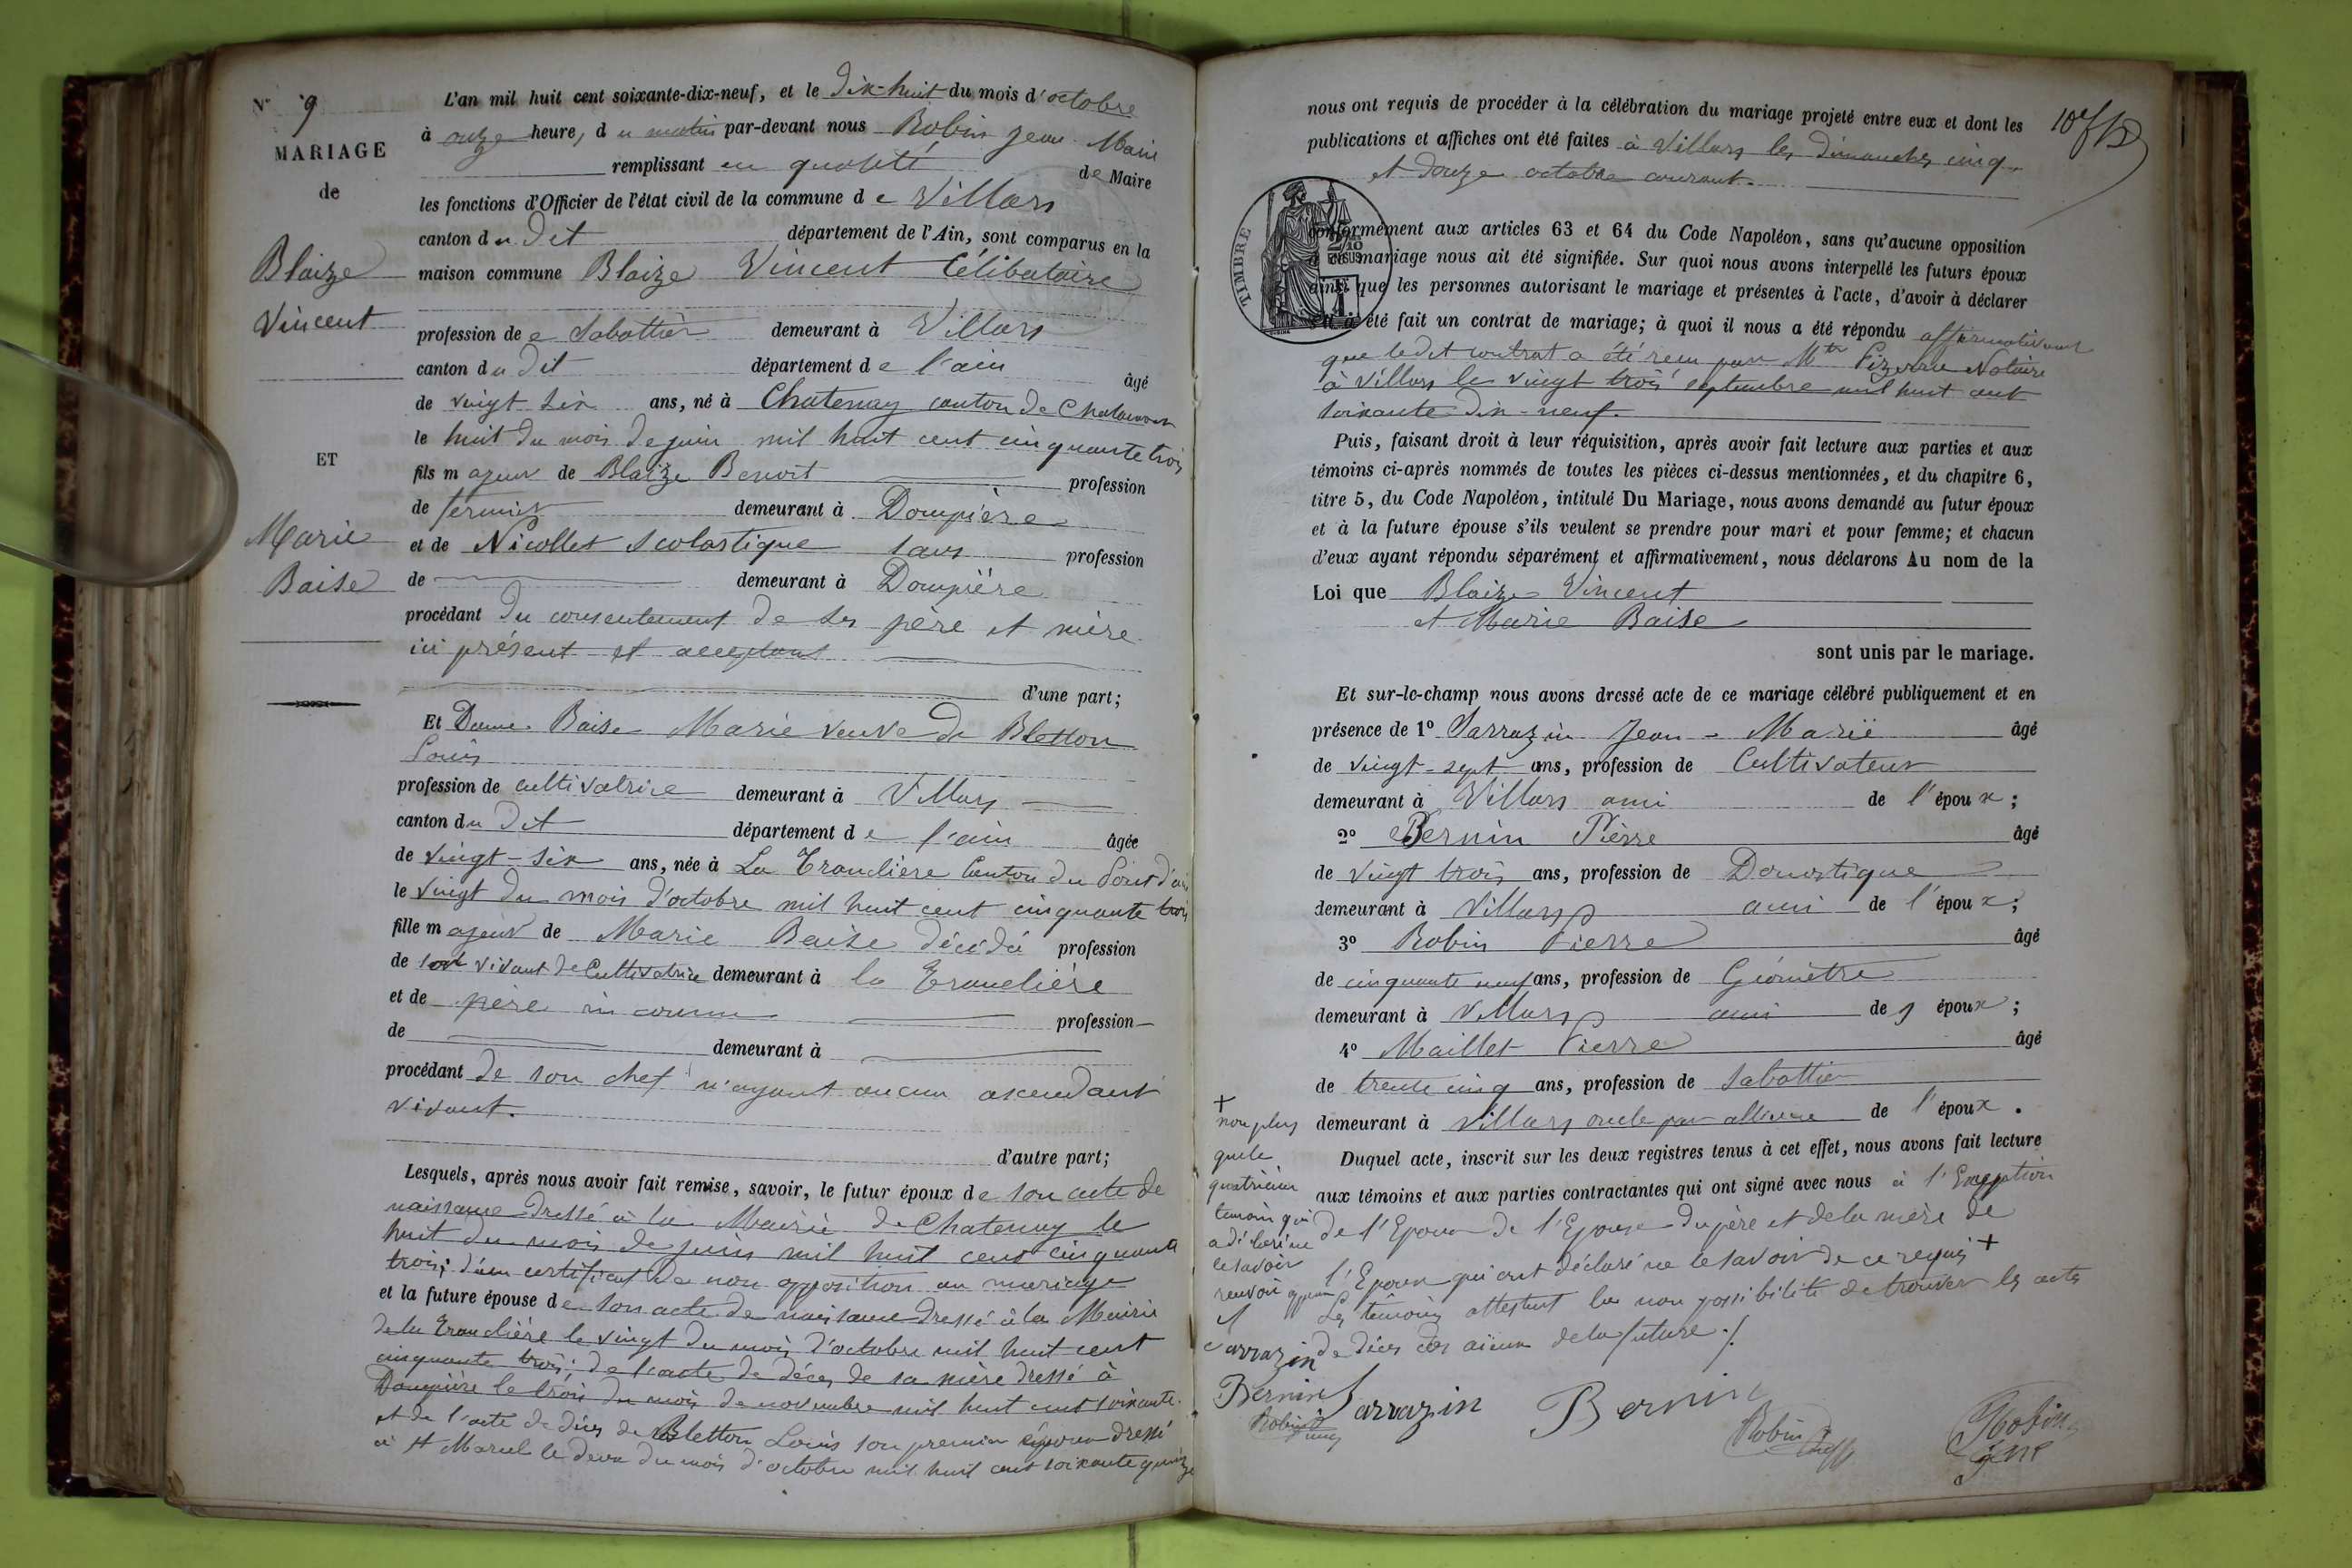 N° 9
MARIAGE
de
Blaize
Vincent
ET
Marie
Baise
L'an mil huit cent soixante-dix-neuf, et le Dix-huit du mois d'octobre
à onze heure, du matin par-devant nous Robin Jean Marie
remplissant en qualité de Maire
les fonctions d'Officier de l'état civil de la commune de Villars
canton du dit département de l'Ain, sont comparus en la
maison commune Blaize Vincent Célibataire
profession de e Sabottier demeurant à Villars
canton du dit département de l'ain âgé
de vingt six ans, né à Chatenay canton de Chalamont
le huit du mois de juin mil huit cent cinquante trois
fils majeur de Blaize Benoit profession
de fermier demeurant à Dompière
et de Nicollet Scolastique sans profession
de demeurant à Dompière
procédant du consentement de ses père et mère
ici présent et acceptant
d'une part;
Et Dame Baise Marie veuve de Bletton
Louis
profession de cultivatrice demeurant à Villars
canton du dit département de l'ain âgée
de vingt-six ans, née à La Tranclière Canton du Pont d'ain
le vingt du mois d'octobre mil huit cent cinquante trois
fille majeur de Marie Baise décédé profession
de son vivant de Cultivatrice demeurant à la Tranclière
et de père inconnu profession
de demeurant à
procédant de son chef n'ayant aucun ascendant
vivant.
d'autre part;
Lesquels, après nous avoir fait remise, savoir, le futur époux de son acte de
naissance dressé à la Mairie de Chatenay le
huit du mois de juin mil huit cent cinquante
trois; d'un certificat de non opposition au mariage
et la future épouse de son acte de naissance dressé à la Mairie
de la Tranclière le vingt du mois d'octobre mil huit cent
cinquante trois; de l'acte de décès de sa mère dressé à
Dompière le trois du mois de novembre mil huit cent soixante
et de l'acte de décès de Bletton Louis son premier époux dressé
à St Marcel le deux du mois d'octobre mil huit cent soixante quinze
nous ont requis de procéder à la célébration du mariage projeté entre eux et dont les
publications et affiches ont été faites à Villars les dimanches cinq
et douze octobre courant.
TIMBRE
2/10
EN SUS
conformément aux articles 63 et 64 du Code Napoléon, sans qu'aucune opposition
à ce mariage nous ait été signifiée. Sur quoi nous avons interpellé les futurs époux
ainsi que les personnes autorisant le mariage et présentes à l'acte, d'avoir à déclarer
s'il a été fait un contrat de mariage; à quoi il nous a été répondu affirmativement
que ledit contrat a été recu par Notaire
à Villars le vingt trois septembre mil huit cent
soixante dix-neuf.
Puis, faisant droit à leur réquisition, après avoir fait lecture aux parties et aux
témoins ci-après nommés de toutes les pièces ci-dessus mentionnées, et du chapitre 6,
titre 5, du Code Napoléon, intitulé Du Mariage, nous avons demandé au futur époux
et à la future épouse s'ils veulent se prendre pour mari et pour femme; et chacun
d'eux ayant répondu séparément et affirmativement, nous déclarons Au nom de la
Loi que Blaize Vincent
et Marie Baise
sont unis par le mariage.
Et sur-le-champ nous avons dressé acte de ce mariage célébré publiquement et en
présence de 1° Sarrazin Jean-Marie âgé
de vingt-sept ans, profession de Cultivateur
demeurant à Villars ami de l'époux;
2° Bernin Pierre âgé
de vingt trois ans, profession de Domestique
demeurant à Villars ami de l'époux;
3° Robin Pierre âgé
de cinquante neuf ans, profession de Géomètre
demeurant à Villars ami de s époux;
4° Maillet Pierre âgé
de trente cinq ans, profession de Sabottier
demeurant à Villars oncle par alliance de l'époux.
Duquel acte, inscrit sur les deux registres tenus à cet effet, nous avons fait lecture
aux témoins et aux parties contractantes qui ont signé avec nous à l'Exception
de l'Epoux de l'Epouse du père et de la mère de
l'Epoux qui ont déclaré ne le savoir de ce requis +
Les témoins attestent la non possibilité de trouver les actes
de décès des aïeux de la future ./.
+
non plus
que le
quatrième
temoin qui
a déclaré ne
le savoir
renvoi
Sarrazin
Bernin
Robin
Sarrazin Bernin
Robin
Robin